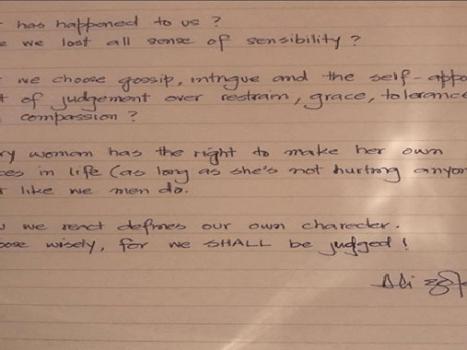 has happened to us ?
we lost all sense of sensibility ?
we choose gossip, intrigue and the self-appo
of judgement over restrain, grace, tolerance
compassion ?
woman has the right to make her own
in life (as long as she's not hurting anyon
like we men do.
we react defines our own charecter.
wisely, for we SHALL be judged !
Ali